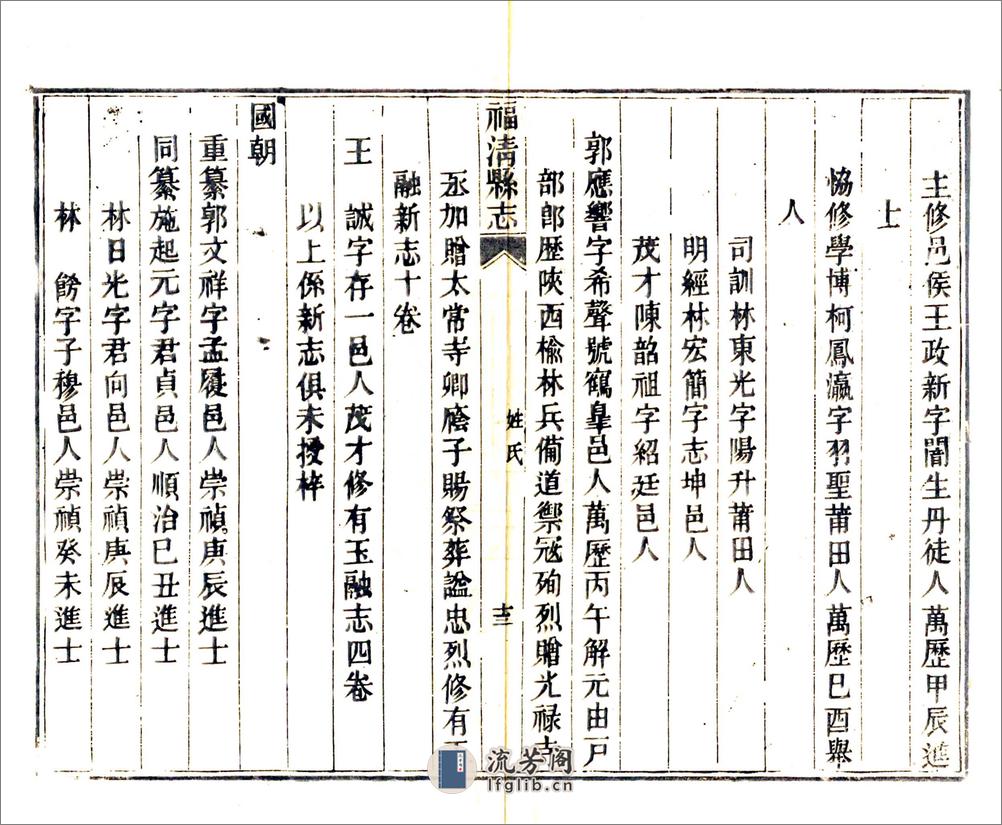 主修邑侯王政新字闇生丹徒人萬歷甲辰進
士
恊修學博柯鳳瀛字羽聖莆田人萬歷巳酉舉
人
司訓林東光字陽升莆田人
明經林宏簡字志坤邑人
茂才陳韶祖字紹廷邑人
郭應響字希聲號鶴臯邑人萬歷丙午解元由戸
部郎歷陝西榆林兵備道禦冦殉烈贈光禄寺
福淸縣志
姓氏
十三
丞加贈太常寺卿廕子賜祭葬謚忠烈修有玉
融新志十卷
王 誠字存一邑人茂才修有玉融志四卷
以上係新志俱未授梓
國朝
重纂郭文祥字孟履邑人崇禎庚辰進士
同纂施起元字君貞邑人順治巳丑進士
林日光字君向邑人崇禎庚辰進士
林 𩜠字子穆邑人崇禎癸未進士
流芳阁
lfglib.cn